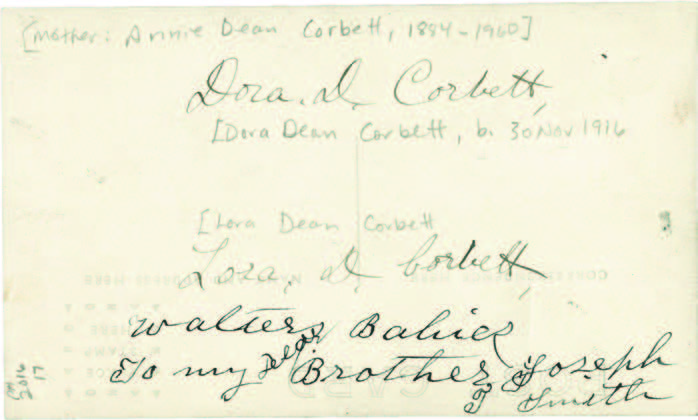 [Mother: Annie Dean Corbett, 1884-1960]
Dora. D. Corbett,
[Dora Dean Corbett, b. 30 Nov 1916
[Lora Dean Corbett
Lora. D. Corbett,
Walters Babies
To my dear Brother J Joseph
Smith
2016
17